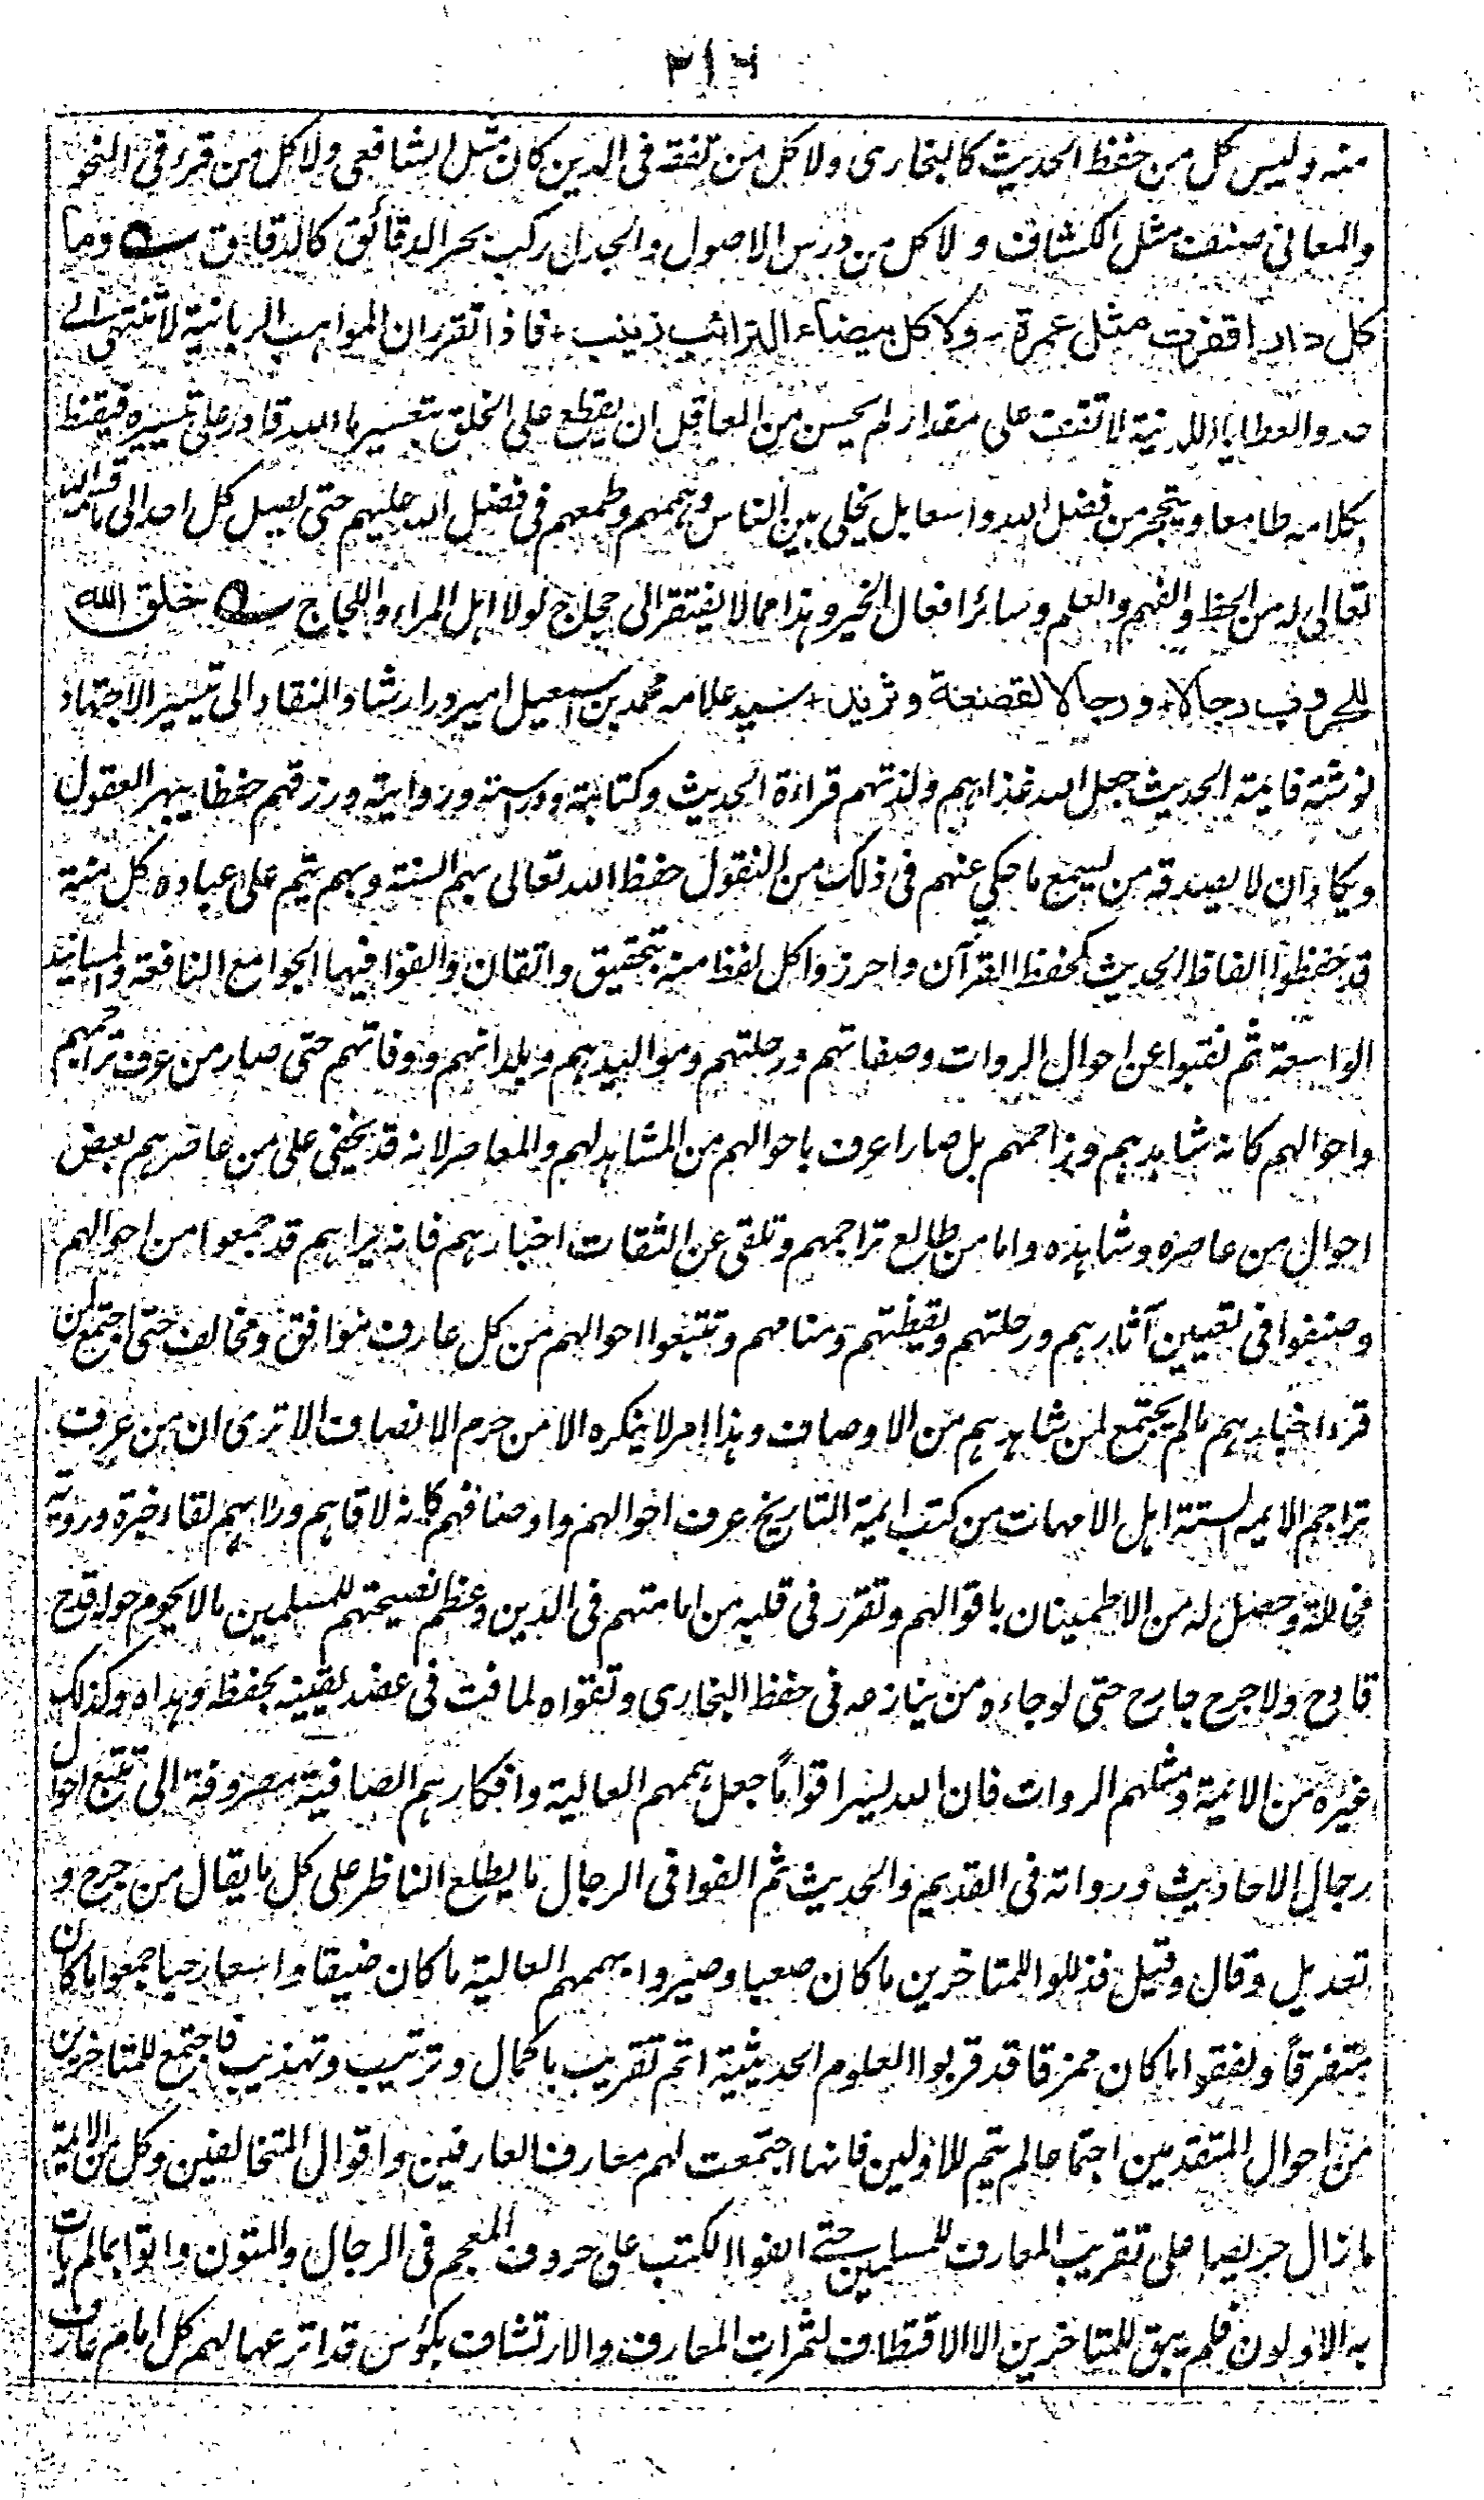 ٣١٦
منه وليس كل من حفظ الحديث كالبخارى ولا كل من تفقه فى الدين كان مثل الشافعى ولا كل من قرء فى النحو
والمعانى صنف مثل الكشاف ولا كل من درس الاصول والجدل ركب بحر الدقائق كالدقاق ؎ وما
كل دار اقفرت مثل عمرة ولا كل بيضاء الترائب زينب + فاذا تقرر ان المواهب الربانية لا تنتهى الى
حد والعطايا اللدنية لا تقف على مقدار لم يحسن من العاقل ان يقطع على الخلق بتعسير ما الله قادر على تيسيره فيقنط
بكلامه طامعا ويتحجر من فضل الله واسعا بل يخلى بين الناس وهممهم وطمعهم فى فضل الله عليهم حتى يصل كل احد الى ما قسم الله
تعالى له من الحظ والفهم والعلم وسائر افعال الخير وهذا مما لا يفتقر الى حجاج لولا اهل المراء واللجاج ؎ خلق الله
للحروب رجالا + ورجالا لقصعة وثريد + سيد علامه محمد بن اسمعيل امير در ارشاد النقاد الى تيسير الاجتهاد
نوشته فايمة الحديث جعل الله غذاهم ولذتهم قراءة الحديث وكتابته ودراسته وروايته ورزقهم حفظا يبهر العقول
ويكاد ان لا يصدقه من يسمع ما حكي عنهم فى ذلك من النقول حفظ الله تعالى بهم السنة وبهم يتم على عباده كل منة
قد حفظوا الفاظ الحديث كحفظ القرآن واحرزوا كل لفظ منه بتحقيق واتقان والفوا فيها الجوامع النافعة والمسانيد
الواسعة ثم نقبوا عن احوال الروات وصفاتهم ورحلتهم ومواليدهم وبلدانهم ووفاتهم حتى صار من عرف تراجمهم
واحوالهم كانه شاهدهم وزاحمهم بل صار اعرف باحوالهم من المشاهد لهم والمعاصر لانه قد يخفى على من عاصرهم بعض
احوال من عاصره وشاهده واما من طالع تراجمهم وتلقى عن الثقات اخبارهم فانه يراهم قد جمعوا من احوالهم
وصنفوا فى تعيين آثارهم ورحلتهم ويقظتهم ومنامهم وتتبعوا احوالهم من كل عارف موافق ومخالف حتى اجتمع لمن
قرء اخبارهم مالم يجتمع لمن شاهدهم من الاوصاف وهذا امر لا ينكره الا من حرم الانصاف الا ترى ان من عرف
تراجم الايمه الستة اهل الامهات من كتب ايمة التاريخ عرف احوالهم واوصافهم كانه لاقاهم وراهم لقاء خبرة وروية
مخاللة وحصل له من الاطمينان باقوالهم وتقرر فى قلبه من امامتهم فى الدين وعظم نصيحتهم للمسلمين مالا يحوم حوله قدح
قادح ولا جرح جارح حتى لو جاءه من ينازعه فى حفظ البخارى وتقواه لما فت فى عضد يقينه بحفظه وهداه وكذلك
غيره من الائمة ومثلهم الروات فان الله يسر اقوامًا جعل هممهم العالية وافكارهم الصافية مصروفة الى تتبع احوال
رجال الاحاديث ورواته فى القديم والحديث ثم الفوا فى الرجال ما يطلع الناظر على كل ما يقال من جرح و
تعديل وقال وقيل فذللوا للمتاخرين ما كان صعبا وصيروا بهممهم العالية ما كان ضيقا واسعا رحبا جمعوا ما كان
متفرقًا ولفقوا ما كان ممزقا قد قربوا العلوم الحديثية اتم تقريب باكمال وترتيب وتهذيب فاجتمع للمتاخرين
من احوال المتقدمين اجتماعا لم يتم للاولين فانها اجتمعت لهم معارف العارفين واقوال المتخالفين وكل من الائمة
ما زال حريصا على تقريب المعارف للمسلمين حتى الفوا الكتب على حروف المعجم فى الرجال والمتون واتوا بمالم يات
به الاولون فلم يبق للمتاخرين الا الاقتطاف لثمرات المعارف والارتشاف بكؤس قد اترعها لهم كل امام عارف